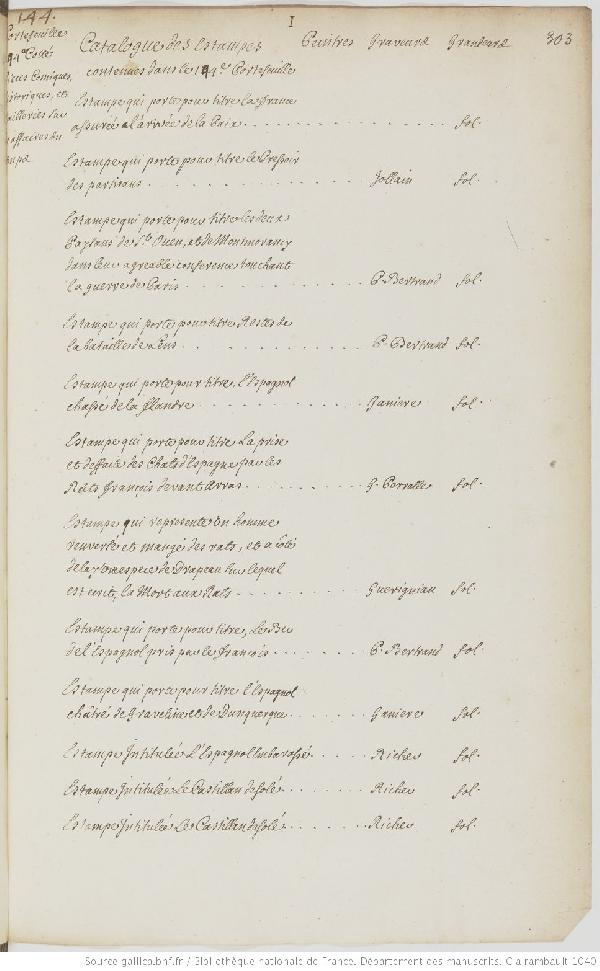 144.
I
303
Portefeuille
144e Cotté
pieces Comiques,
historiques, et
railleries sur
affaires du
temps
Catalogue des Estampes Peintres Graveurs Grandeurs
contenues dans le 144e Portefeuille
Estampe qui porte pour titre la france
assurée a l'arivée de la Paix fol.
Estampe qui porte pour titre le Pressoir
des partisans Jollain fol.
Estampe qui porte pour titre les deux
Paysans de St. Ouen, et de Montmorancy
dans leur agreable conference touchant
la guerre de Paris P. Bertrand fol.
Estampe qui porte pour titre Restes de
la bataille de Lens P. Bertrand fol.
Estampe qui porte pour titre, l'Espagnol
chassé de la flandre Ganiere fol.
Estampe qui porte pour titre La prise
et deffaite des Chats d'Espagne par les
Rats françois devant Arras G. Perralle fol.
Estampe qui represente un homme
renversé et mangé des rats, et a coté
de luy une espece de Drapeau sur lequel
est ecrit, la Mort aux Rats Guerigniau fol.
Estampe qui porte pour titre, le
de l'Espagnol pris par le françois P. Bertrand fol.
Estampe qui porte pour titre l'Espagnol
chatré de Graveline et de Dunquerque Ganiere fol.
Estampe Intitulée L'Espagnol Embarassé Riche fol.
Estampe Intitulée Le Castillan desolé Riche fol.
Estampe Intitulée Le Castillan desolé Riche fol.
Source gallica.bnf.fr / Bibliothèque nationale de France. Département des manuscrits. Clairambault 1040